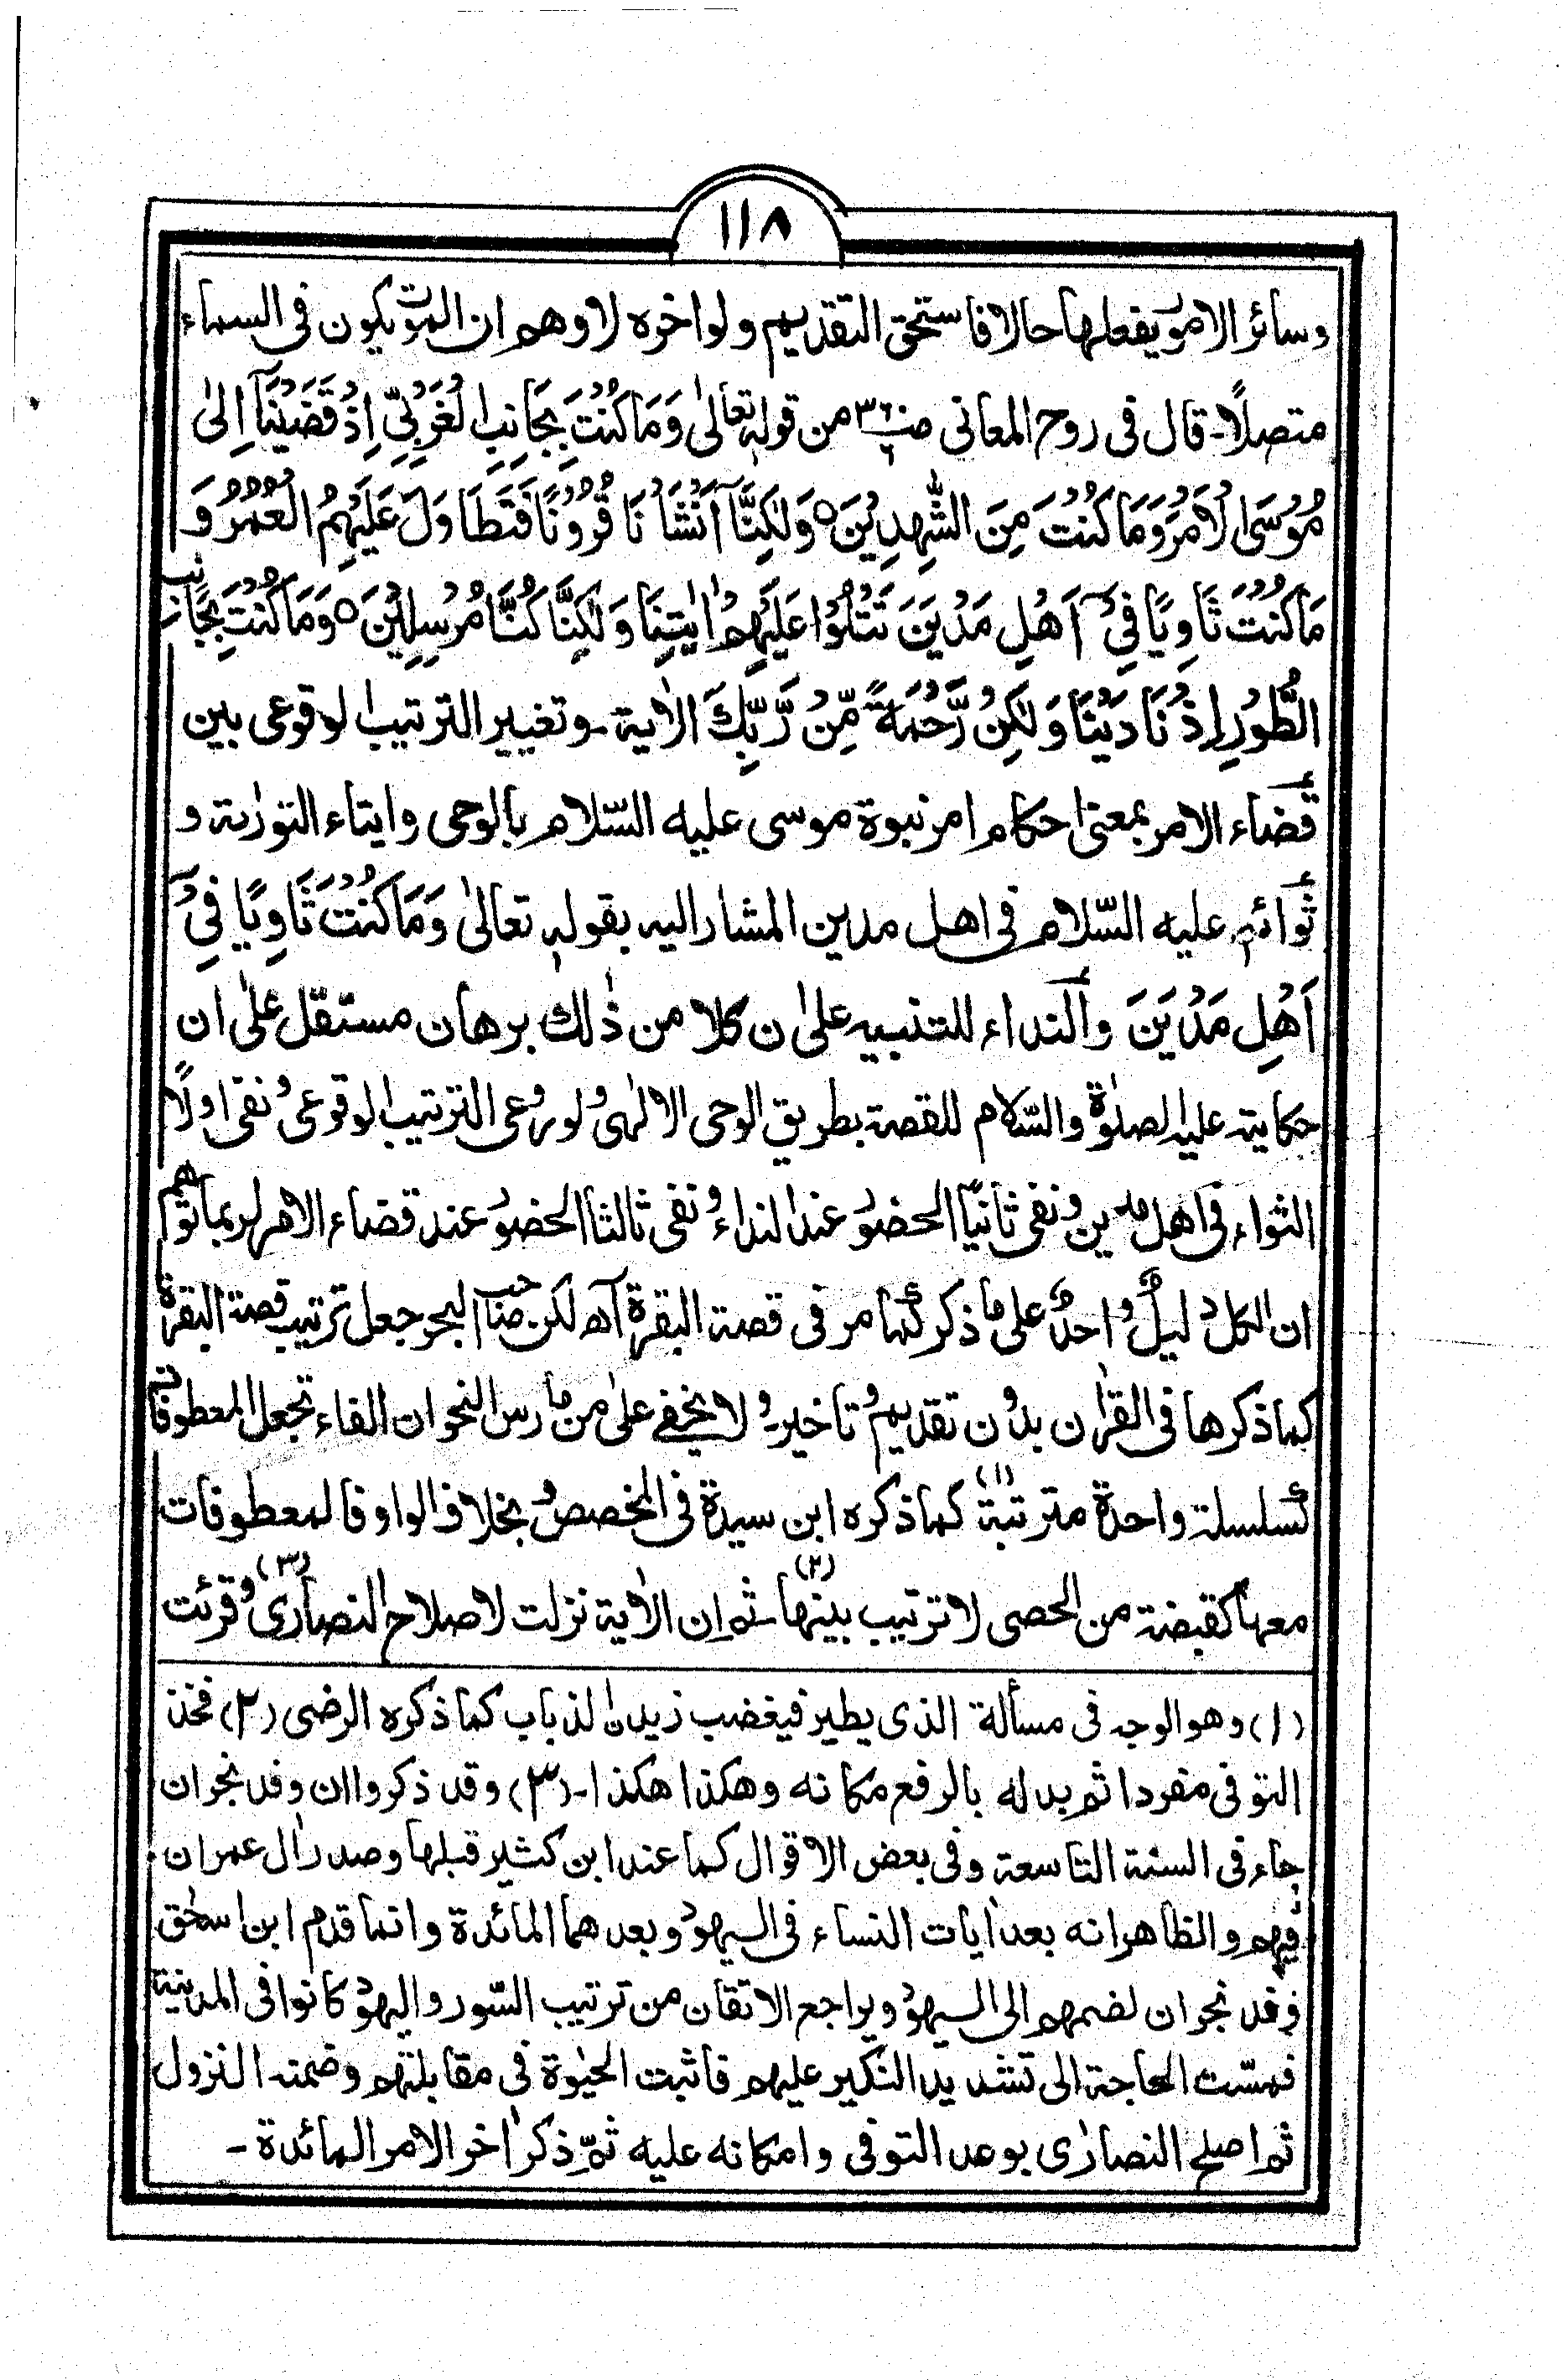 ١١٨
وسائر الامور يفعلها حالا فاستحق التقديم ولو اخره لاوهم ان الموت يكون فى السماء
متصلاً۔ قال فى روح المعانى من قوله تعالىٰ وَمَا كُنْتَ بِجَانِبِ الْغَرْبِيِّ اِذْ قَضَيْنَآ اِلىٰ
مُوْسَى الْاَمْرَ وَمَا كُنْتَ مِنَ الشّٰهِدِيْنَ ○ وَلٰكِنَّآ اَنْشَاْنَا قُرُوْنًا فَتَطَاوَلَ عَلَيْهِمُ الْعُمُرُ وَ
مَا كُنْتَ ثَاوِيًا فِيْٓ اَهْلِ مَدْيَنَ تَتْلُوْا عَلَيْهِمْ اٰيٰتِنَا وَلٰكِنَّا كُنَّا مُرْسِلِيْنَ ○ وَمَا كُنْتَ بِجَانِبِ
الطُّوْرِ اِذْ نَادَيْنَا وَلٰكِنْ رَّحْمَةً مِّنْ رَّبِّكَ الاٰية۔ وتغيير الترتيب الوقوعى بين
قضاء الامر بمعنىٰ احكام امر نبوة موسى عليه السّلام بالوحى وايتاء التورٰىة و
ثوائه عليه السّلام فى اهل مدين المشار اليه بقوله تعالىٰ وَمَا كُنْتَ ثَاوِيًا فِيْٓ
اَهْلِ مَدْيَنَ والنداء للتنبيه علىٰ ان كلا من ذٰلك برهان مستقل علىٰ ان
حكايته عليه الصلوٰة والسّلام للقصة بطريق الوحى الالهى ولو روعى الترتيب الوقوعى ونفى اولاً
الثواء فى اهل مدين ونفى ثانيًا الحضور عند النداء ونفى ثالثا الحضور عند قضاء الامر لربما توهم
ان الكل دليلٌ واحدٌ على ما ذكر كما مر فى قصة البقرة اٰه لكن صاحب البحر جعل ترتيب قصة البقرة
كما ذكرها فى القراٰن بدون تقديم وتاخير۔ ولا يخفے علىٰ من مارس النحو ان الفاء تجعل المعطوفات
كسلسلة واحدة مترتبة (١) كما ذكره ابن سيدة فى المخصص وبخلاف الواو فالمعطوفات
معها كقبضة من الحصى لا ترتيب بينها (٢) ثم ان الاٰية نزلت لاصلاح النصارى (٣) وقرئت
(١) وهو الوجه فى مسألة الذى يطير فيغضب زيدان الذباب كما ذكره الرضى (٢) فخذ
التوفى مفردا ثم بدله بالرفع مكانه وهكذا هكذا۔ (٣) وقد ذكروا ان وفد نجران
جاء فى السنة التاسعة وفى بعض الاقوال كما عند ابن كثير قبلها وصدر اٰل عمران
فيهم والظاهر انه بعد اٰيات النساء فى اليهود وبعدهما المائدة وانما قدم ابن اسحٰق
وفد نجران لضمهم الى اليهود ويراجع الاتقان من ترتيب السّور واليهود كانوا فى المدينة
فمسّت الحاجة الى تشديد النكير عليهم فاثبت الحيٰوة فى مقابلتهم وضمنه النزول
ثم اصلح النصارٰى بوعد التوفى وامكانه عليه ثمّ ذكر اٰخر الامر المائدة۔